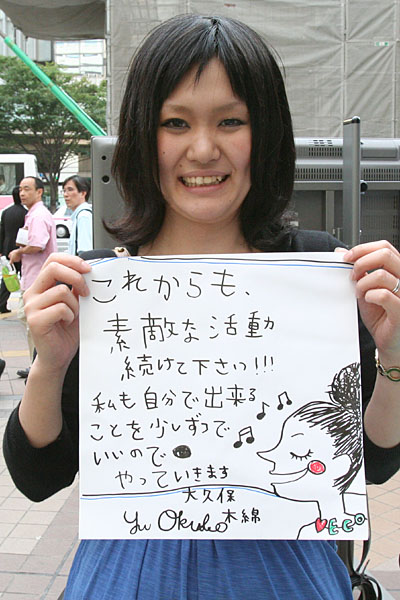 これからも、
素敵な活動
続けて下さいっ!!!
私も自分で出来る
ことを少しずつで
いいので
やっていきます
大久保
木綿
Yu Okubo
♥ECO